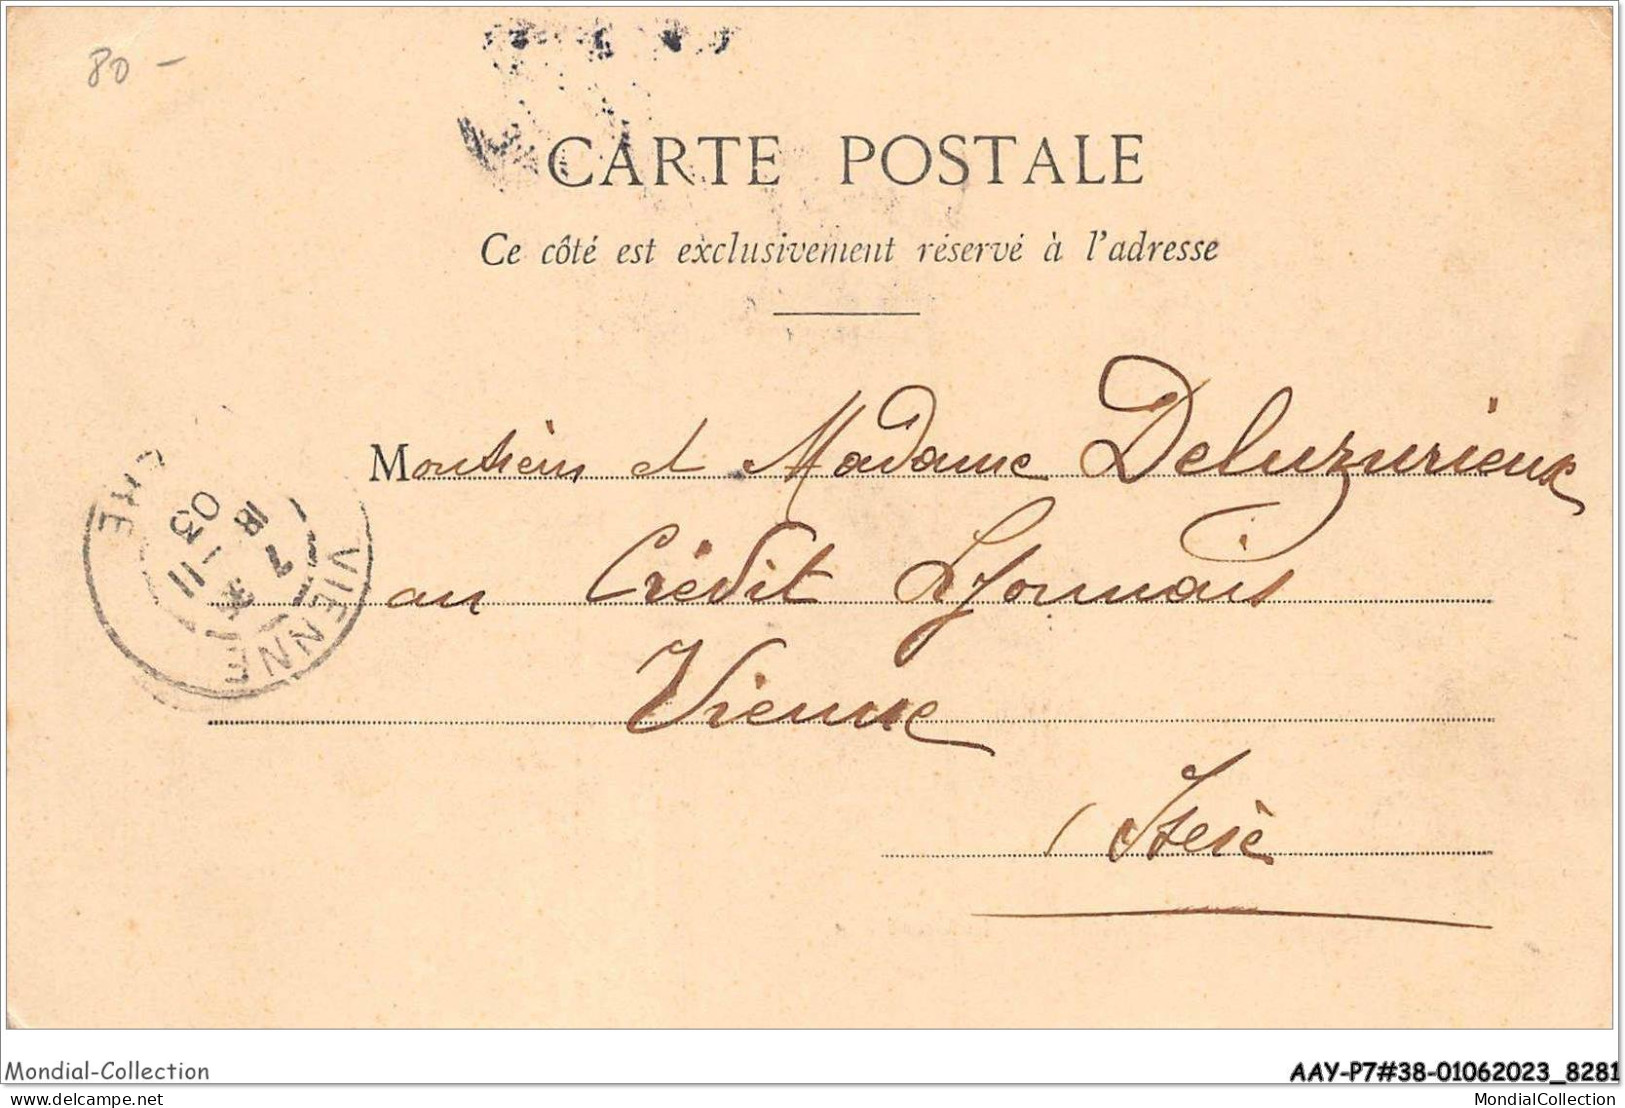 80 -
CARTE POSTALE
Ce côté est exclusivement réservé à l'adresse
Monsieur et Madame Deluzurieux
au Crédit Lyonnais
Vienne
Isère
VIENNE
18
7 -11
03
Mondial-Collection
AAY-P7#38-01062023_8281
delcampe.net
MondialCollection